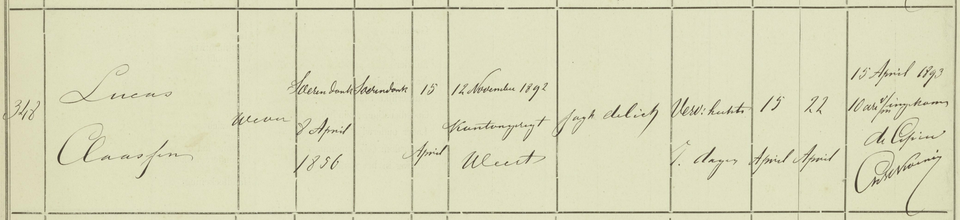 348
Lucas
Claassen
wever
Soerendonk
8 April
1856
Soerendonk
15
April
12 November 1892
Kantongeregt
Weert
Jagt delict
7. dagen
15
April
22
April
15 April 1893
de Cipier